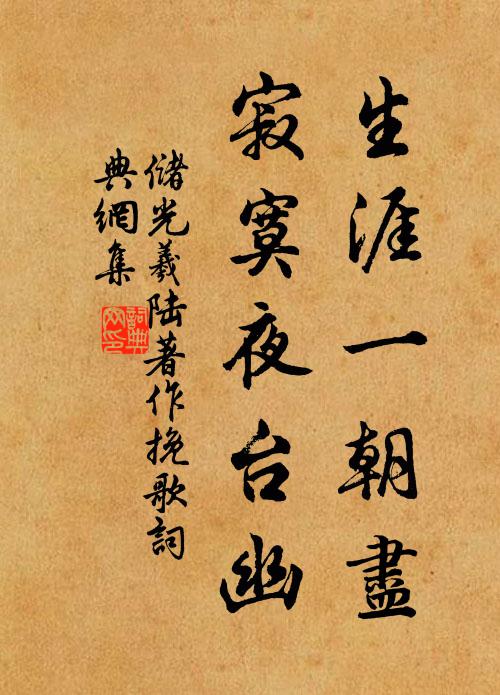 生涯一朝盡
寂寞夜台幽
儲光羲陸著作挽歌詞
典網集
詞典網印